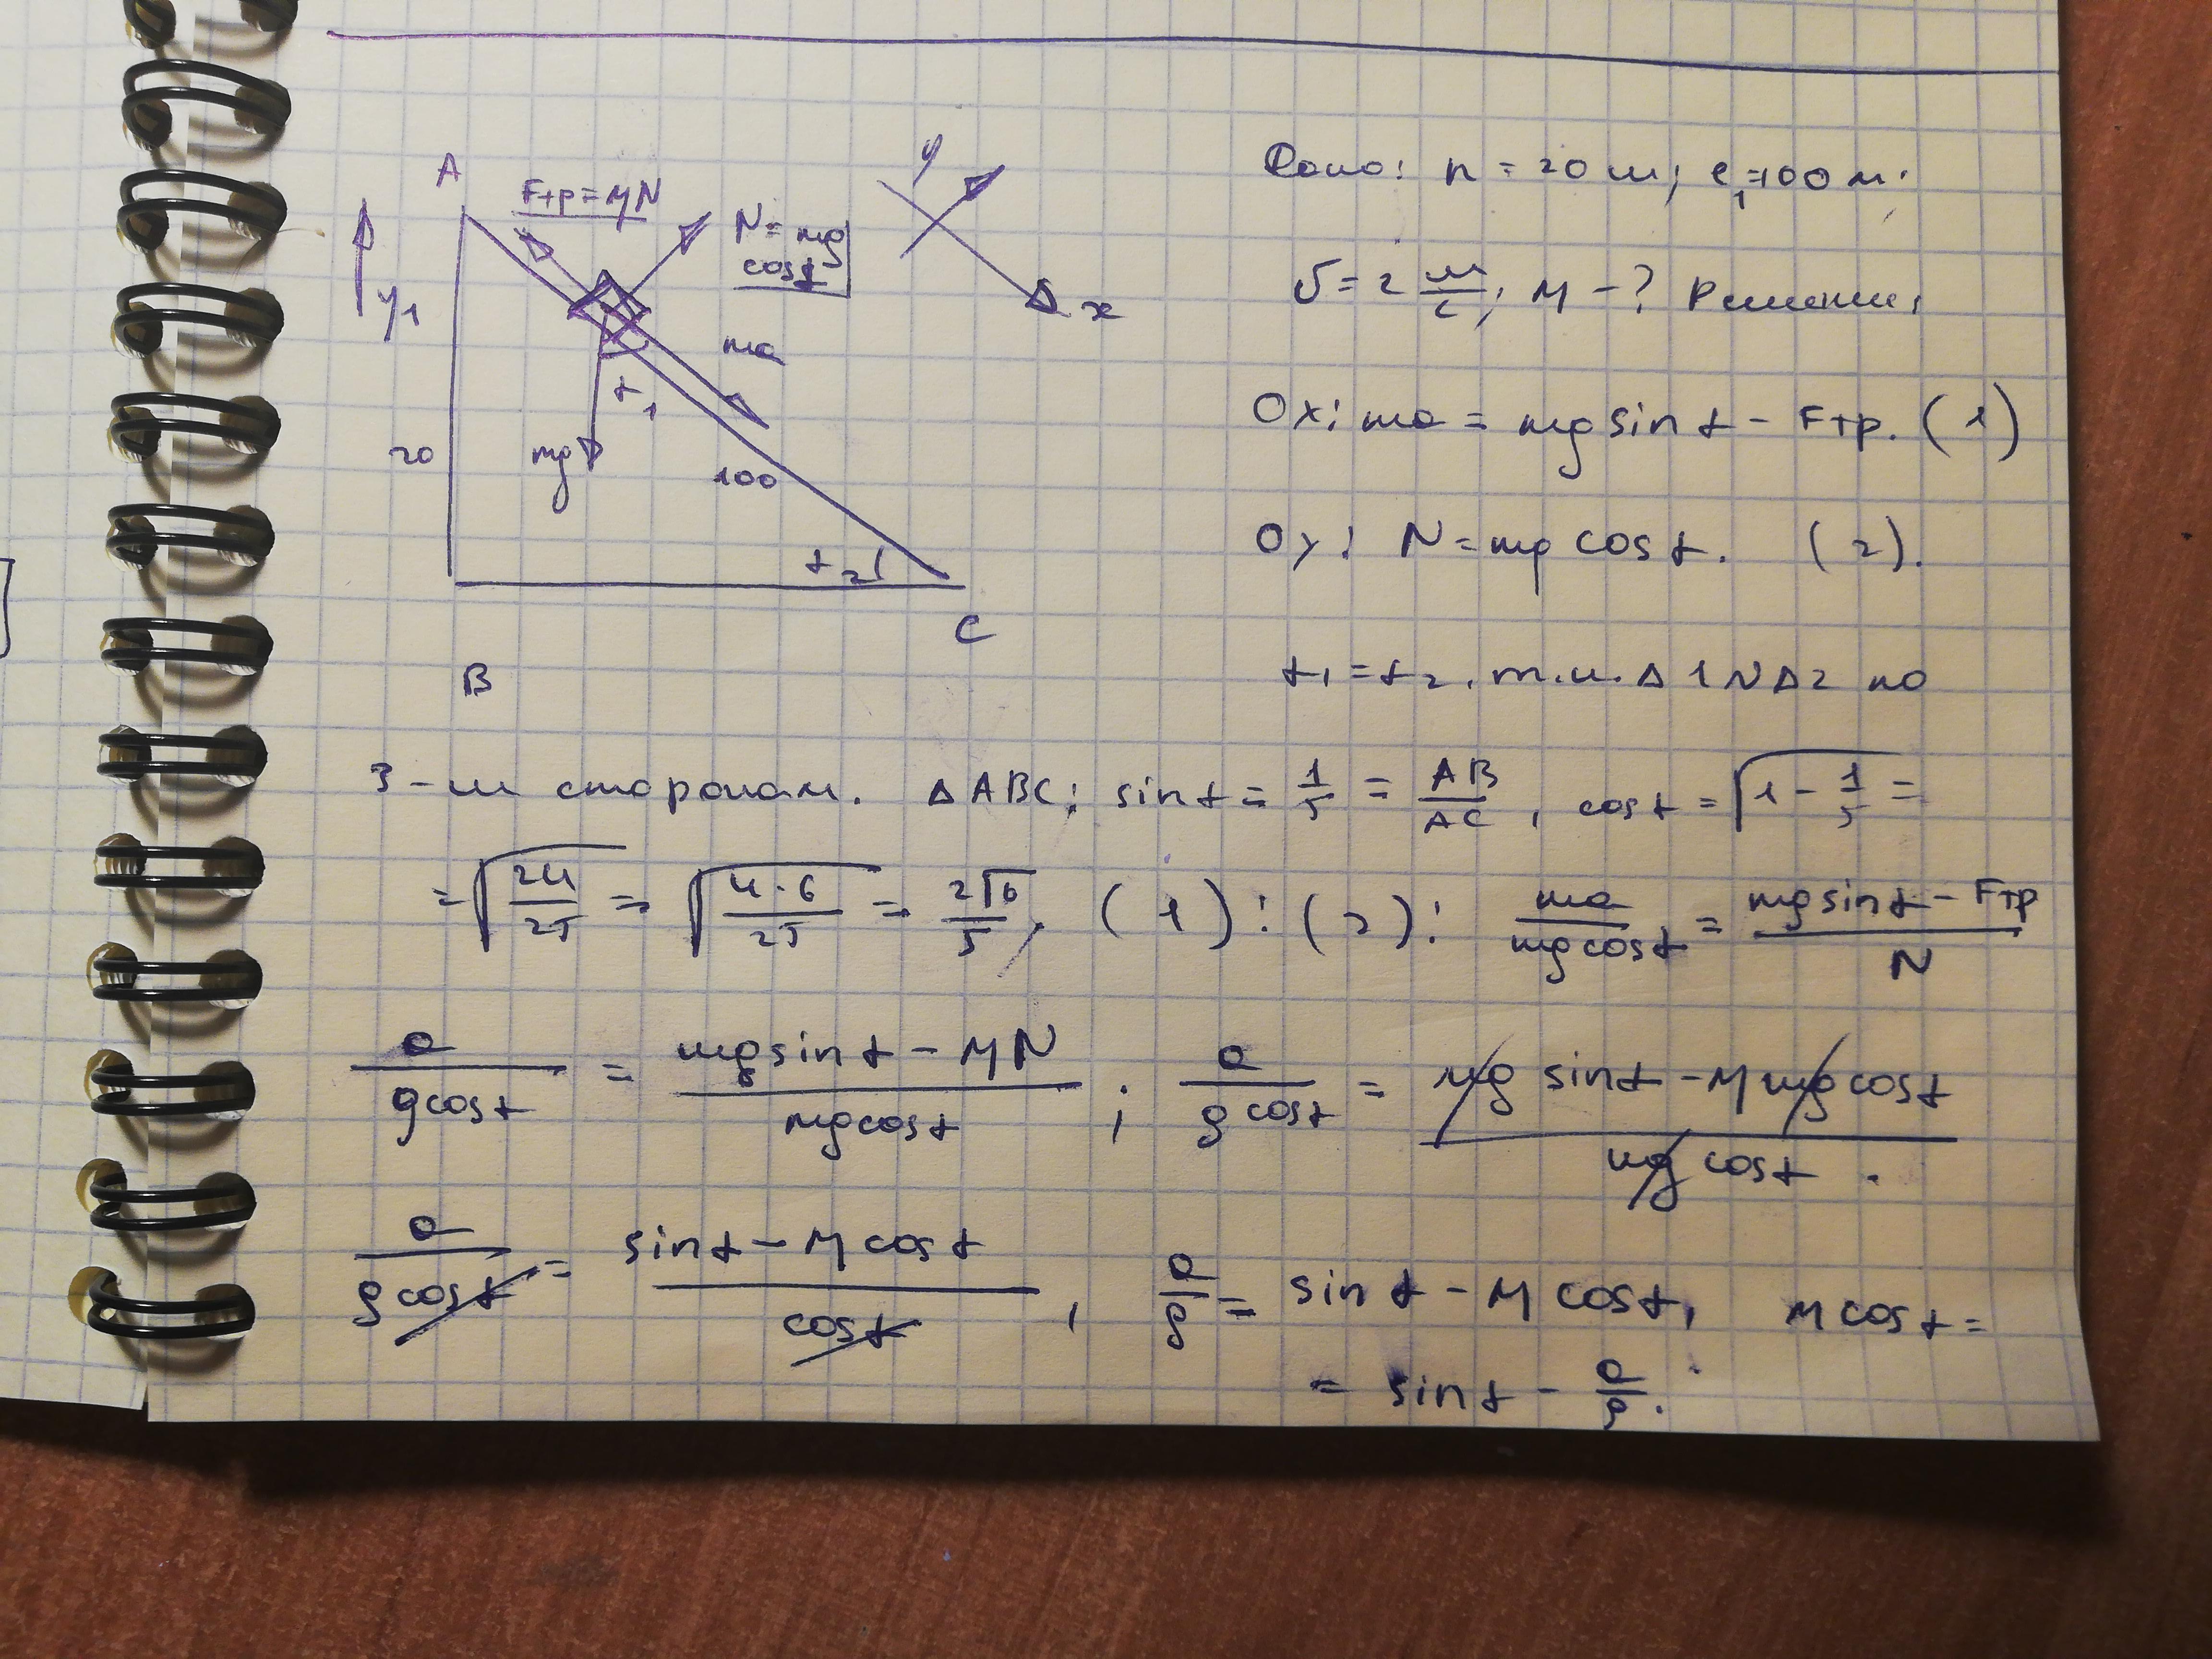 A
Fтр=μN
N=mg
cosα
y
x
y1
ma
α1
mg
20
100
α2
C
B
Дано: h = 20 м; l1=100 м;
v = 2 м/с; μ - ? Решение:
Ox: ma = mg sin α - Fтр. (1)
Oy: N = mg cos α. (2).
α1 = α2, т.к. Δ1 ~ Δ2 по
3-м сторонам. ΔABC: sin α = 1/5 = AB/AC, cos α = √(1 - 1/5) =
= √(24/25) = √(4·6/25) = 2√6/5, (1):(2): ma/(mg cos α) = (mg sin α - Fтр)/N
a/(g cos α) = (mg sin α - μN)/(mg cos α); a/(g cos α) = (mg sin α - μ mg cos α)/(mg cos α).
a/(g cos α) = (sin α - μ cos α)/(cos α), a/g = sin α - μ cos α, μ cos α =
= sin α - a/g.